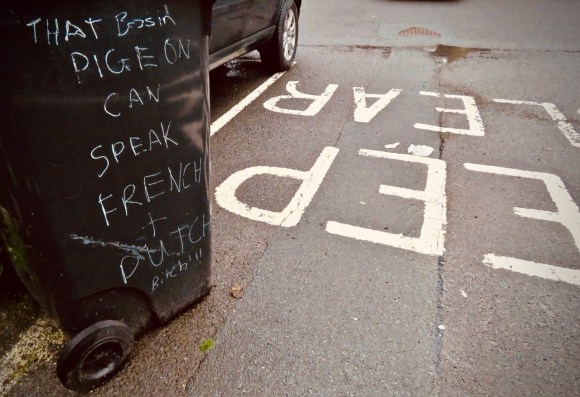 THAT Bossin
PIGEON
CAN
SPEAK
FRENCH
+
DUTCH
Bitch!!!
EEP
LEAR